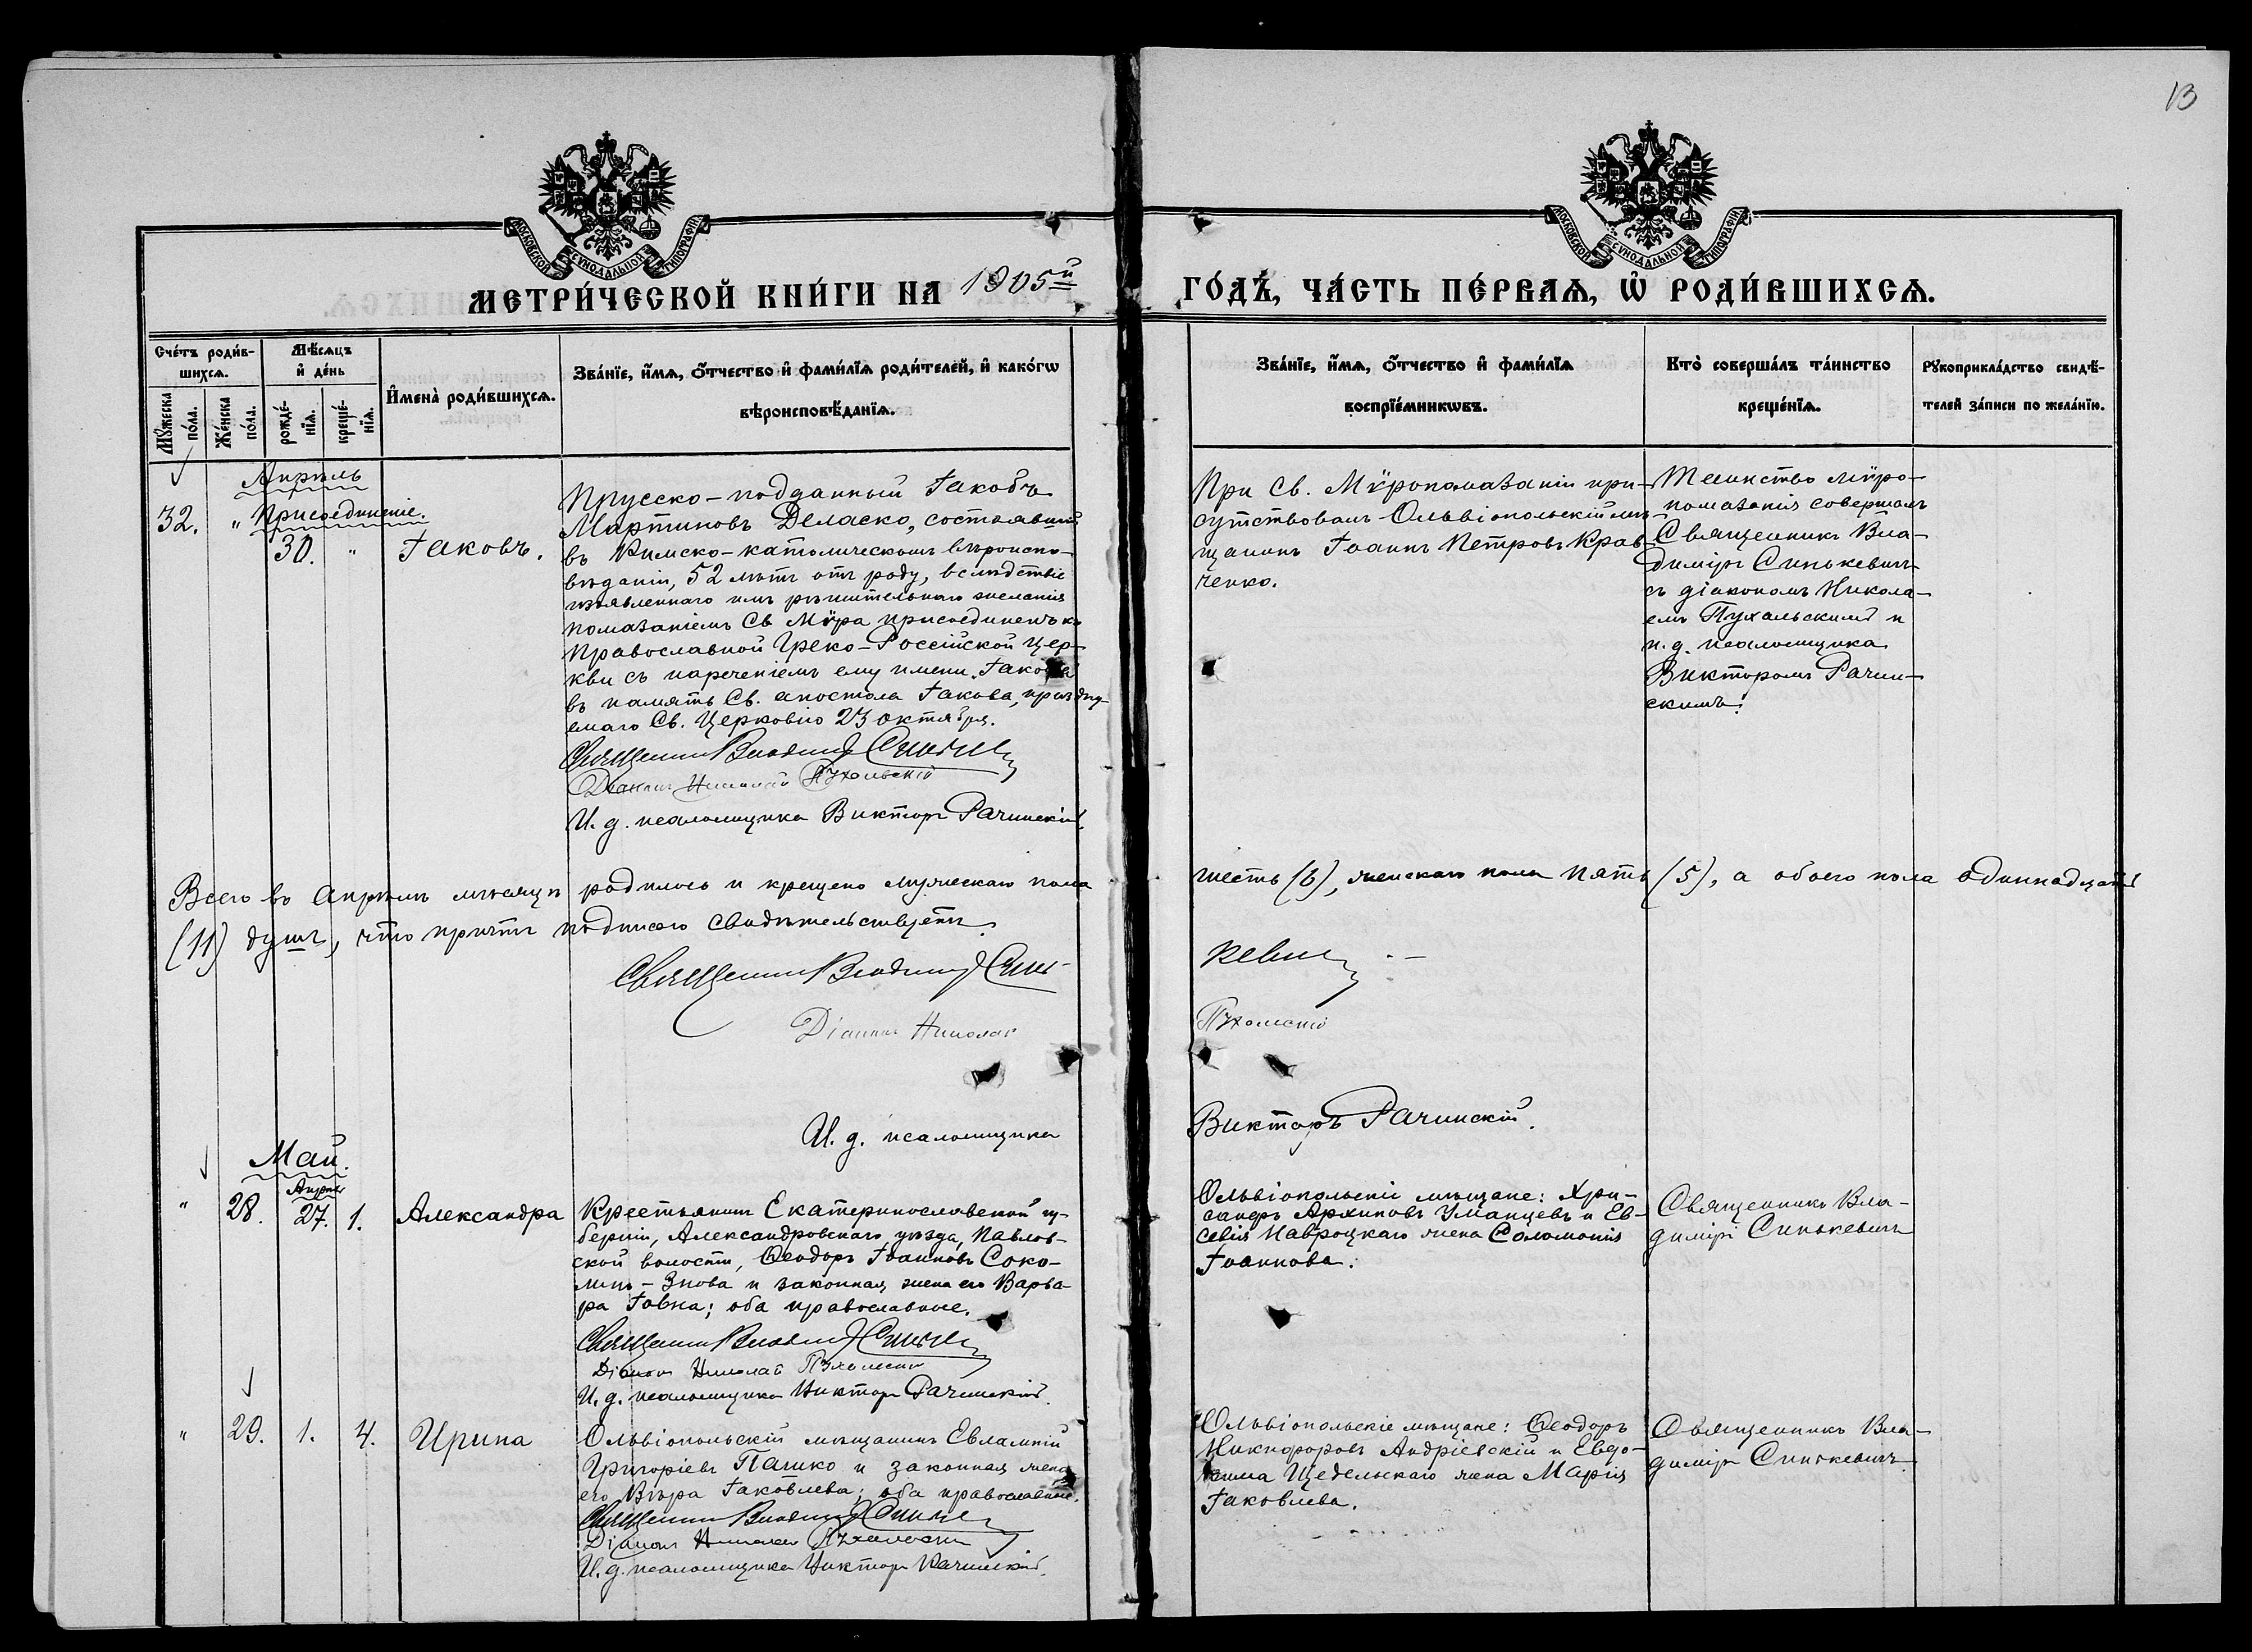 13
МОСКОВСКОЙ СѴНОДАЛЬНОЙ ТИПОГРАФІИ
МОСКОВСКОЙ СѴНОДАЛЬНОЙ ТИПОГРАФІИ
МЕТРИ́ЧЕСКОЙ КНИ́ГИ НА 1905й
ГО́ДЪ, ЧА́СТЬ ПЕ́РВАѦ, Ѡ҆ РОДИ́ВШИХСѦ.
Сче́тъ роди́в-
шихсѧ.
Мꙋ́жеска по́ла.
Же́нска по́ла.
Мѣ́сѧцъ
и҆ де́нь
рожде́-
нїѧ.
креще́-
нїѧ.
И҆мена̀ роди́вшихсѧ.
Зва́нїе, и҆́мѧ, ѻ҆́тчество и҆ фами́лїѧ роди́телей, и҆ како́гѡ
вѣроисповѣ́данїѧ.
Зва́нїе, и҆́мѧ, ѻ҆́тчество и҆ фами́лїѧ
воспрїе́мникѡвъ.
Кто̀ соверша́лъ та́инство
креще́нїѧ.
Рꙋкоприкла́дство свидѣ́-
телей за́писи по жела́нїю.
Апрѣль
32. " Присоединеніе.
30. " Іаковъ.
Прусско-подданный Іаковъ
Мартиновъ Деласко, состоявшій
въ Римско-католическомъ вѣроиспо-
вѣданіи, 52 лѣтъ отъ роду, вслѣдствіе
изъявленнаго имъ рѣшительнаго желанія
помазаніемъ Св Мѵра присоединенъ къ
Православной Греко-Россійской Цер-
кви съ нареченіемъ ему имени Іакова
въ память Св. апостола Іакова, праздну-
емаго Св. Церковію 23 октября.
Священникъ Владиміръ Синькевичъ
Діаконъ Николай Пухальскій
И. д. псаломщика Викторъ Рачинскій.
При Св. Мѵропомазаніи при-
сутствовалъ Ольвіопольскій мѣ-
щанинъ Іоаннъ Петровъ Крав-
ченко.
Таинство мѵро-
помазанія совершалъ
Священникъ Вла-
димiръ Синькевичъ
съ діакономъ Никола-
емъ Пухальскимъ и
и. д. псаломщика
Викторомъ Рачин-
скимъ.
Всего въ Апрѣлѣ мѣсяцѣ родилось и крещено мужескаго пола шесть (6), женскаго пола пять (5), а обоего пола одиннадцать
(11) душъ, что причтъ подписью свидѣтельствуетъ.
Священникъ Владиміръ Синь-
кевичъ
Діаконъ Николай
Пухальскій
И. д. псаломщика
Викторъ Рачинскій.
Май.
" 28. Апрѣля 27. 1. Александра
Крестьянинъ Екатеринославской гу-
берніи, Александровскаго уѣзда, Павлов-
ской волости, Ѳеодоръ Іоанновъ Соко-
линъ- и законная жена его Варва-
ра ; оба православные.
Священникъ Владиміръ Синькевичъ
Діаконъ Николай Пухальскій
И. д. псаломщика Викторъ Рачинскій.
Ольвіопольскіе мѣщане: Хри-
санфъ Архиповъ Уманцевъ и Ев-
севія Навроцкаго жена Соломонія
Іоаннова.
Священникъ Вла-
диміръ Синькевичъ
" 29. 1. 4. Ирина
Ольвіопольскій мѣщанинъ Евлампій
Григоріевъ Пашко и законная жена
его Вѣра Іаковлева; оба православные.
Священникъ Владиміръ Синькевичъ
Діаконъ Николай Пухальскій
И. д. псаломщика Викторъ Рачинскій.
Ольвіопольскіе мѣщане: Ѳеодоръ
Никифоровъ Андріевскій и Евдо-
кима жена Марія
Іаковлева.
Священникъ Вла-
диміръ Синькевичъ.